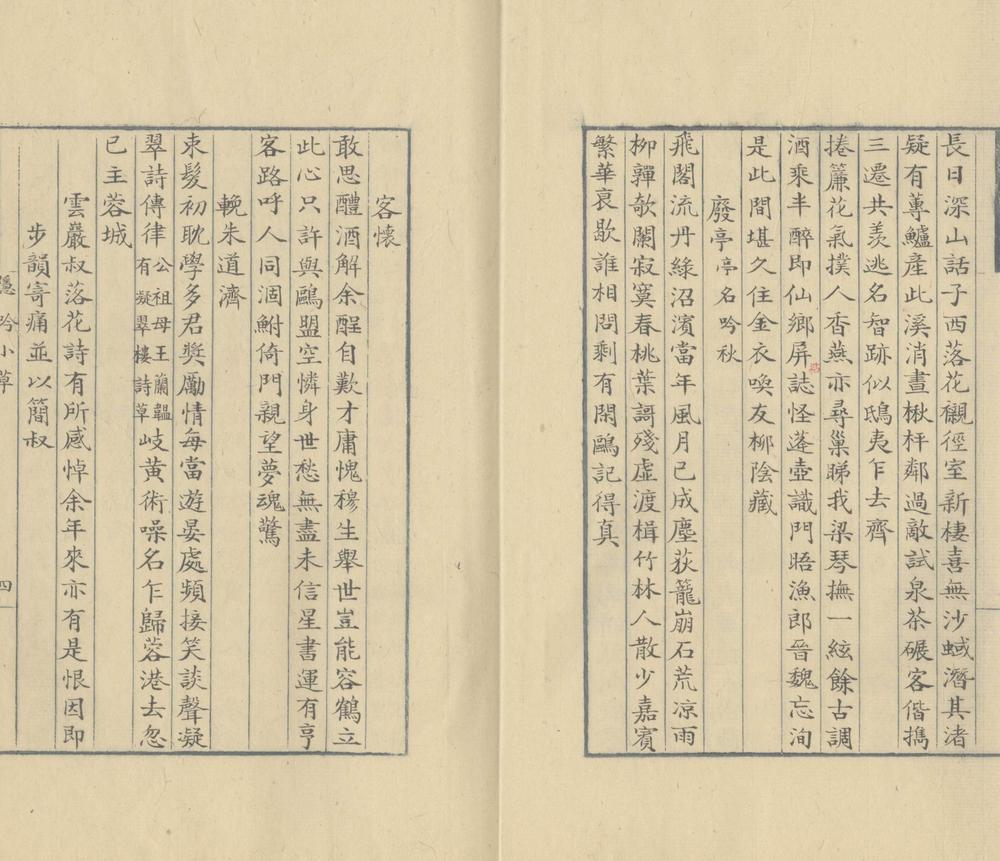 長日深山話子西落花襯徑室新棲喜無沙蜮潛其渚
疑有蓴鱸產此溪消晝楸枰鄰過敵試泉茶碾客偕擕
三遷共羨逃名智跡似鴟夷乍去齊
捲簾花氣撲人香燕亦尋巢睇我梁琴撫一絃餘古調
酒乘半醉即仙鄉屏誌怪蓬壺識門晤漁郎晉魏忘洵
是此間堪久住金衣喚友柳陰藏
廢亭亭名吟秋
飛閣流丹綠沼濱當年風月已成塵荻籠崩石荒凉雨
柳嚲欹闌寂寞春桃葉謌殘虛渡楫竹林人散少嘉賓
繁華哀歇誰相問剩有閑鷗記得真
客懷
敢思醴酒解余酲自歎才庸愧穆生舉世豈能容鶴立
此心只許與鷗盟空憐身世愁無盡未信星書運有亨
客路呼人同涸鮒倚門親望夢魂驚
輓朱道濟
束髮初耽學多君獎勵情每當遊晏處頻接笑談聲凝
翠詩傳律公祖母王蘭韞有凝翠樓詩草岐黃術噪名乍歸蓉港去忽
已主蓉城
雲巖叔落花詩有所感悼余年來亦有是恨因即
步韻寄痛並以簡叔
隱吟小草
四